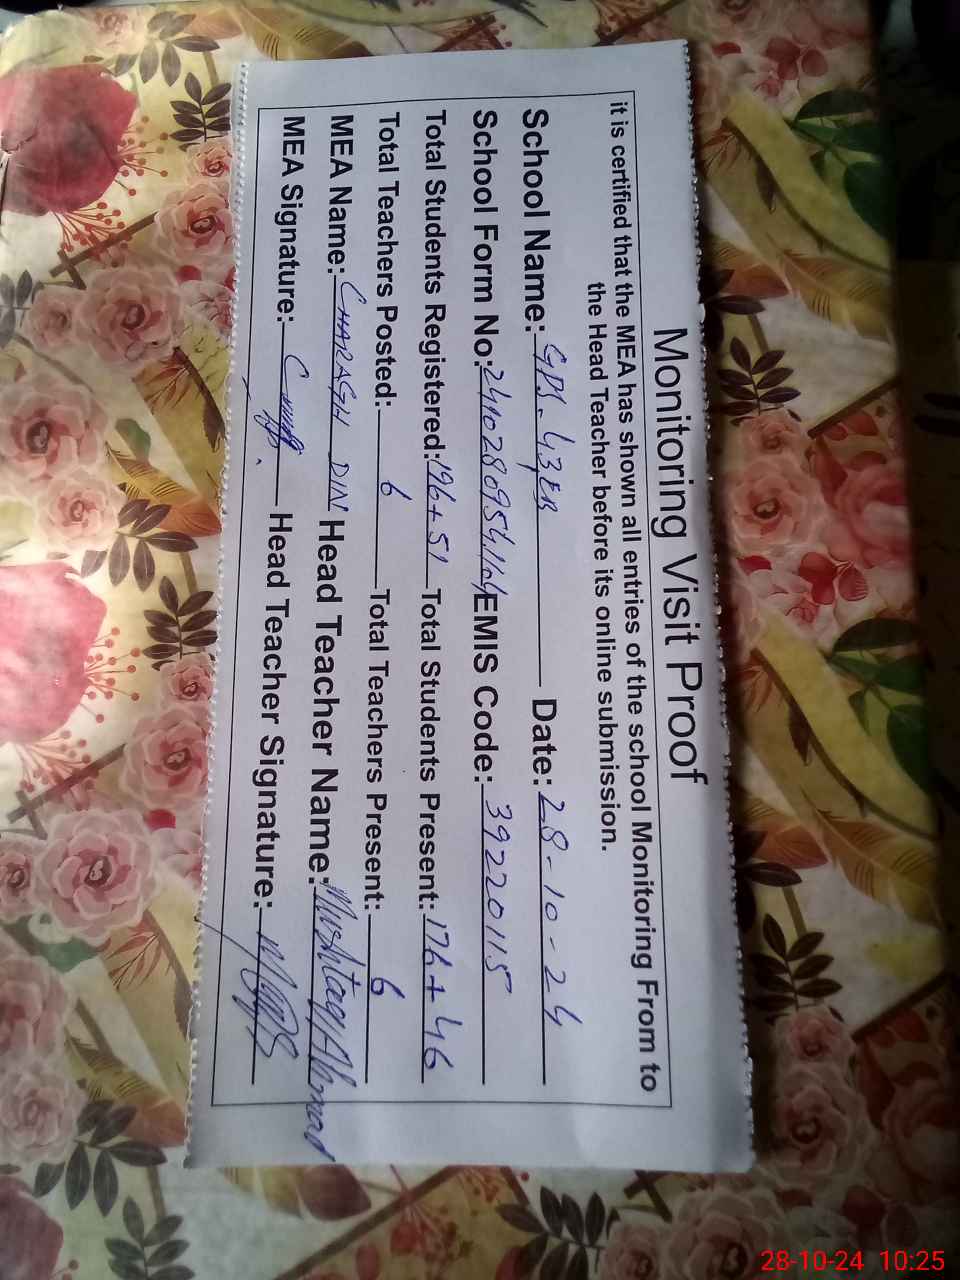 Monitoring Visit Proof
it is certified that the MEA has shown all entries of the school Monitoring From to
the Head Teacher before its online submission.
School Name: GPS. 43/EB Date: 28-10-24
School Form No: EMIS Code: 39220115
Total Students Registered: 196+51 Total Students Present: 176+46
Total Teachers Posted: 6 Total Teachers Present: 6
MEA Name: CHARAGH DIN Head Teacher Name: Mushtaq Ahmad
MEA Signature: Head Teacher Signature:
28-10-24 10:25